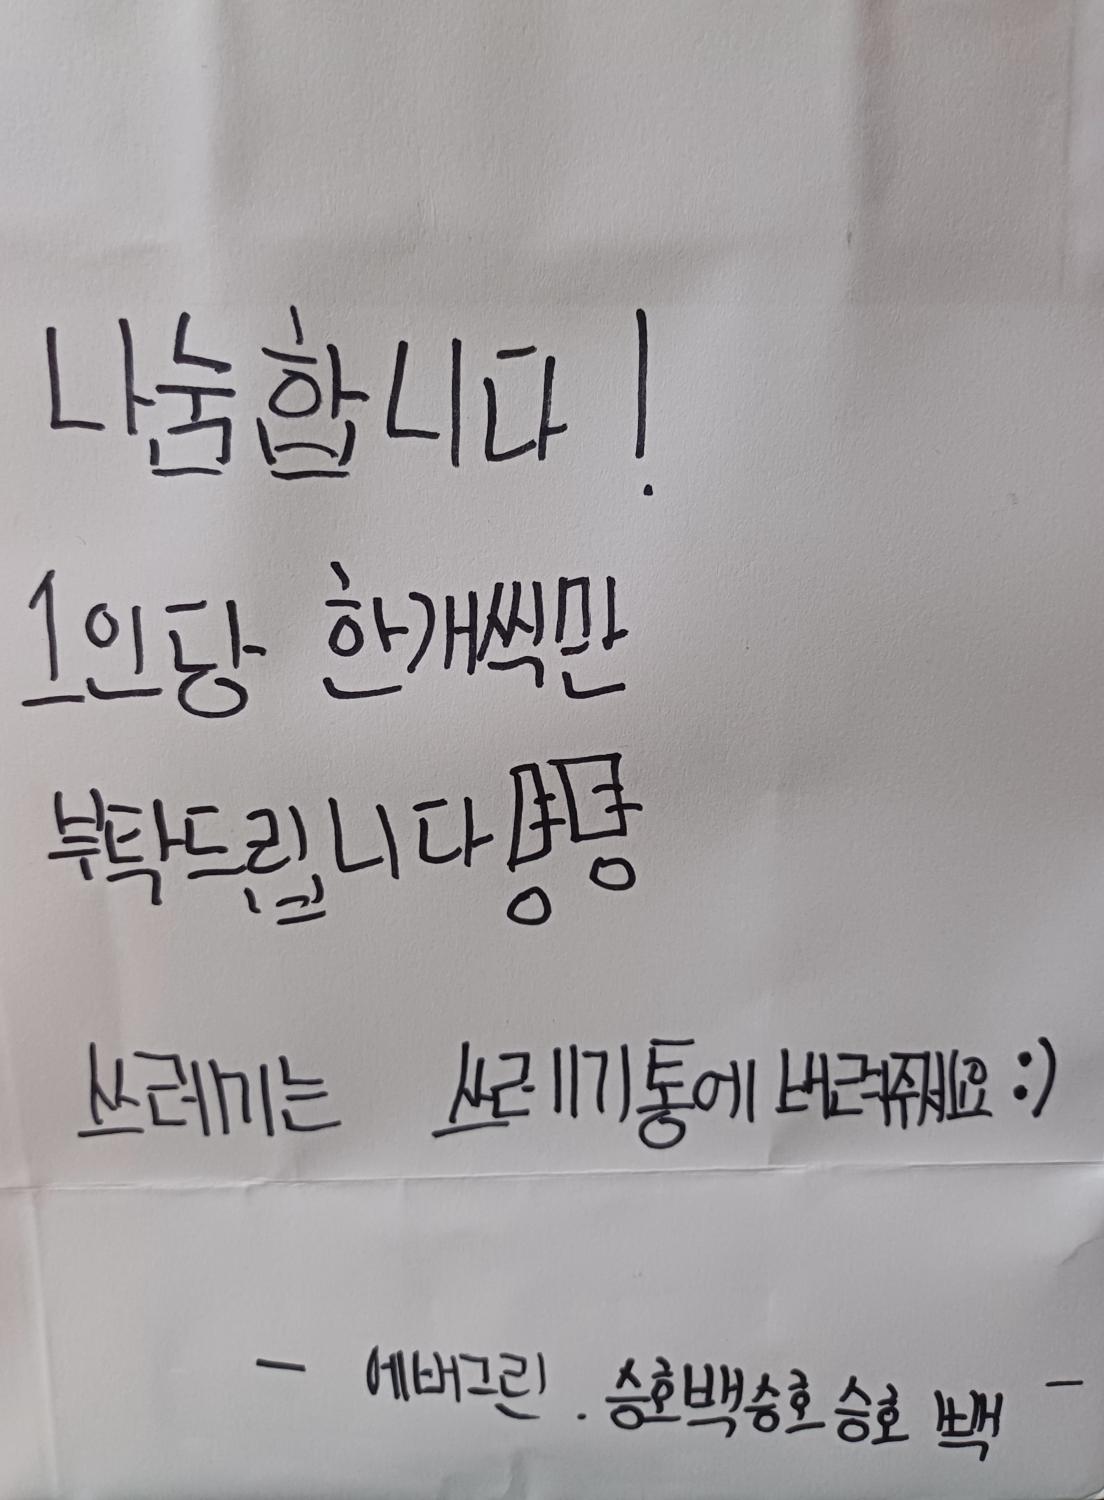 나눔합니다!
1인당 한개씩만
부탁드립니다
쓰레기는 쓰레기통에 버려줘세요 :)
- 에버그린. 승호백승호승호 백 -